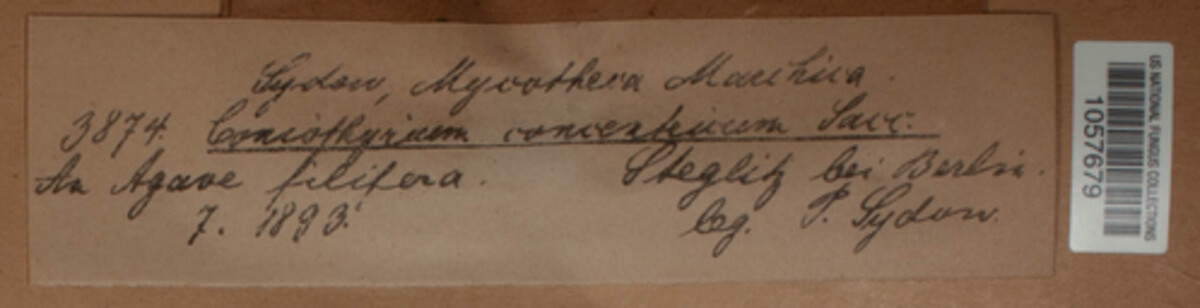 Sydow, Mycotheca Marchica.
3874. Coniothyrium concentricum Sacc.
An Agave filifera. Steglitz bei Berlin.
7. 1893. leg. P. Sydow.
US NATIONAL FUNGUS COLLECTIONS
1057679